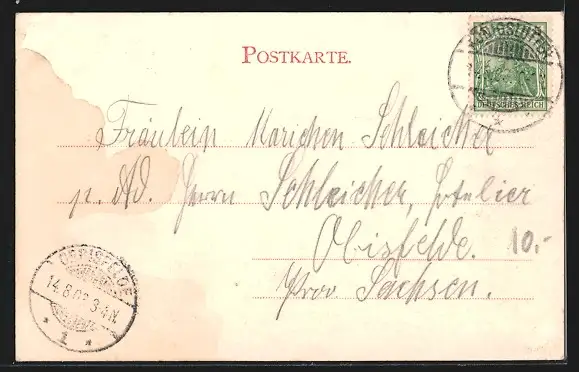 POSTKARTE.
KÖNIGSLUTTER
DEUTSCHES REICH
Fräulein Mariechen Schleicher
p. Ad. Herrn Schleicher, Hotelier
Obisfelde. 10.-
Prov Sachsen.
OEBISFELDE
14.8.02 3-4N.
* 1 *